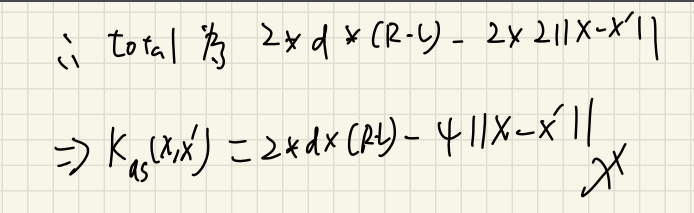 ∴ total 為 2*d*(R-L) - 2×2||X-X'||
⇒ K_ds(x,x') = 2*d×(R-L) - 4||X-X'||